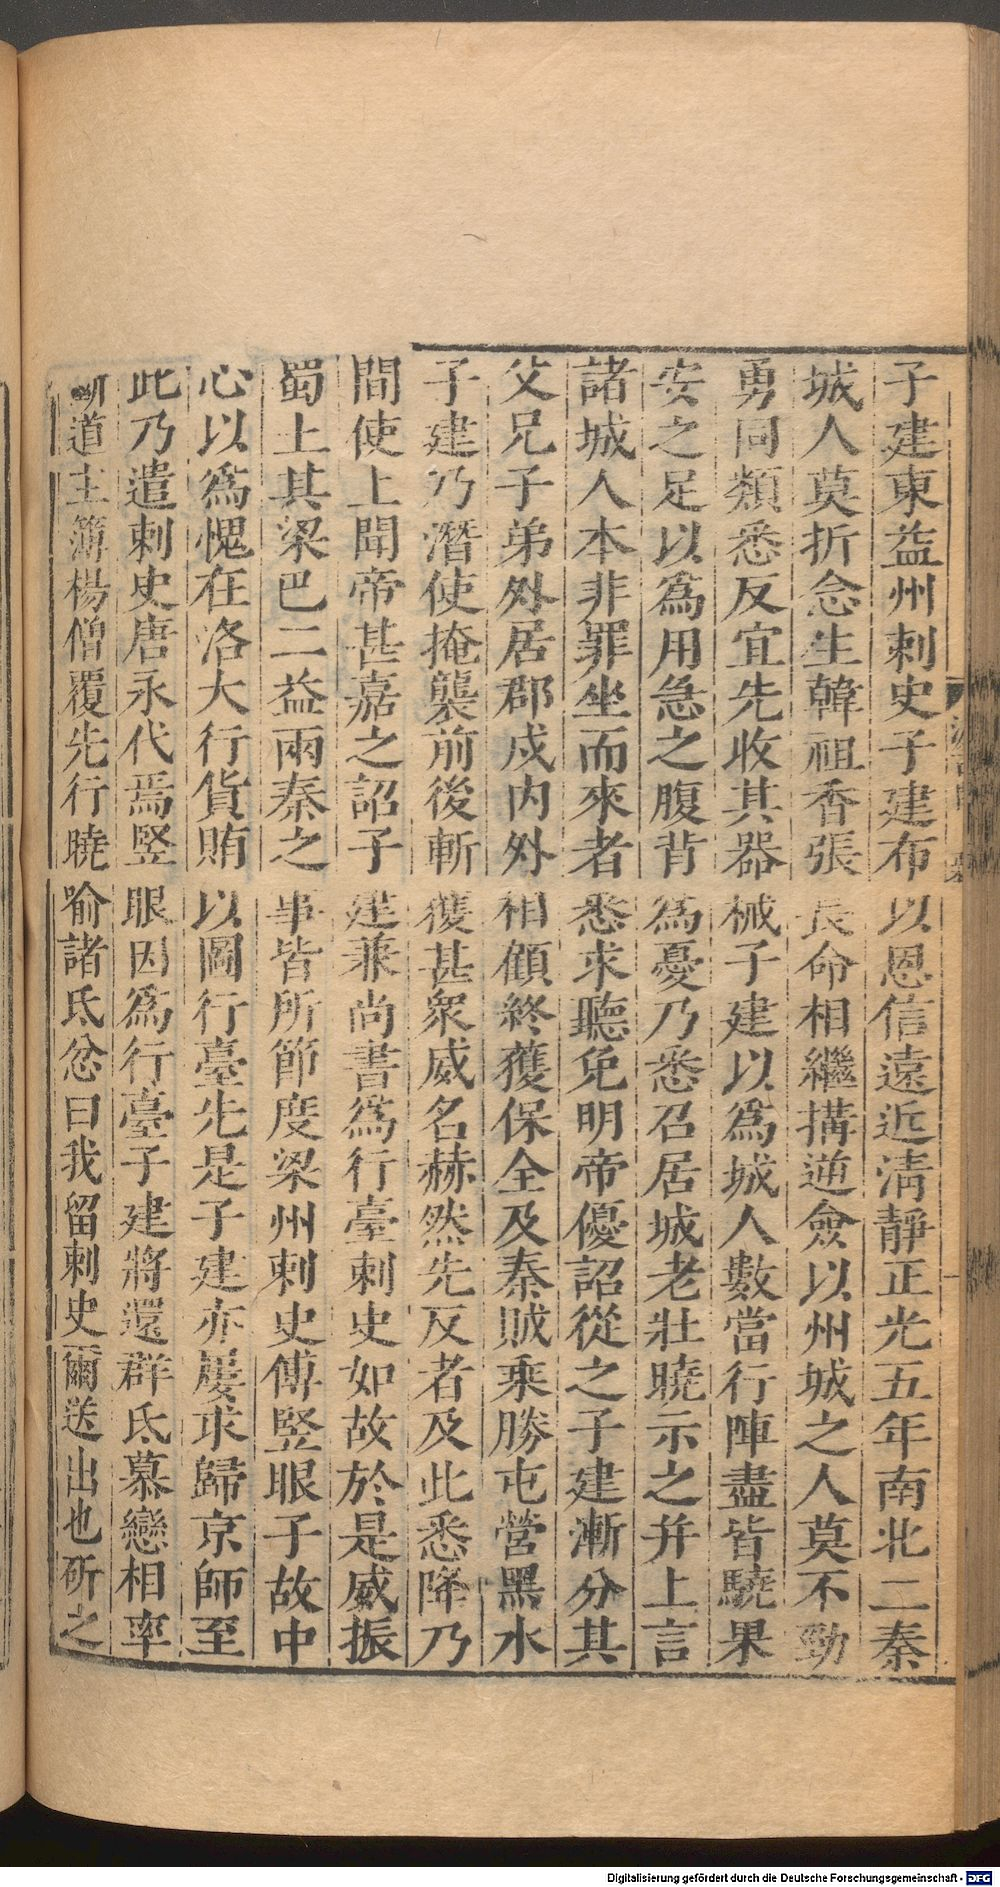 子建東益州刺史子建布以恩信遠近淸靜正光五年南北二秦
城人莫折念生韓祖香張長命相繼搆逆僉以州城之人莫不勁
勇同類悉反宜先收其器械子建以爲城人數當行陣盡皆驍果
安之足以爲用急之腹背爲憂乃悉召居城老壯曉示之并上言
諸城人本非罪坐而來者悉求聽免明帝優詔從之子建漸分其
父兄子弟外居郡戍内外相顧終獲保全及秦賊乘勝屯營黑水
子建乃潛使掩襲前後斬獲甚衆威名赫然先反者及此悉降乃
間使上聞帝甚嘉之詔子建兼尚書爲行臺刺史如故於是威振
蜀土其梁巴二益兩秦之事皆所節度梁州刺史傅竪眼子故中
心以爲愧在洛大行貨賄以圖行臺先是子建亦屢求歸京師至
此乃遣刺史唐永代焉竪眼因爲行臺子建將還群氐慕戀相率
斷道主簿楊僧覆先行曉喻諸氐忿曰我留刺史爾送出也斫之
Digitalisierung gefördert durch die Deutsche Forschungsgemeinschaft - DFG